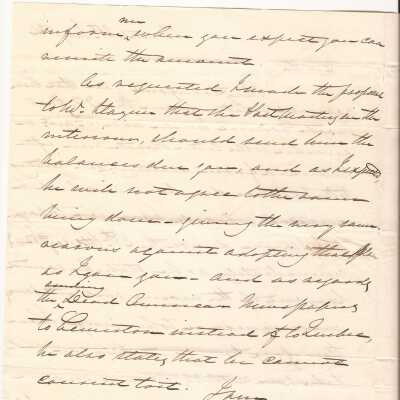 me
inform, when you expect you can
remit the amount
As requested I made the proposal
to Mr. Hague that the Post Masters in the
interior, should send him the
balances due you, and as I expected,
he will not agree to the same
being done - giving the very same
reasons against adopting that plan
as I gave you - and as regards
sending
the Dead American Newspapers
to Lewiston instead of to Quebec,
he also states, that he cannot
consent to it. I am